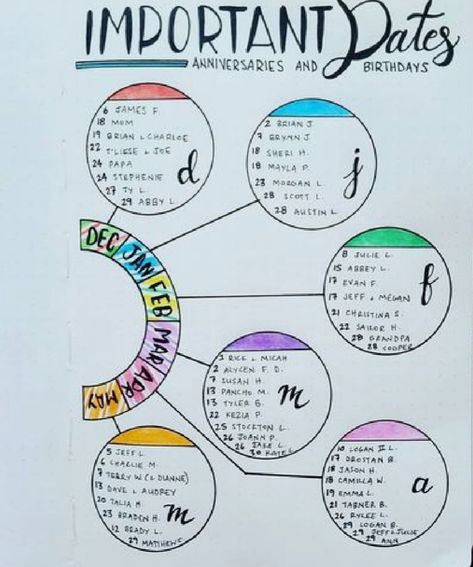 IMPORTANT Dates
ANNIVERSARIES AND BIRTHDAYS
6 JAMES F.
18 MOM
19 BRIAN & CHARLOE
22 T'LIESE & JOE
24 PAPA
24 STEPHENIE
27 TY L.
29 ABBY L.
d
2 BRIAN J
7 BRYNN J
18 SHERI H.
18 MAYLA P.
23 MORGAN L.
28 SCOTT L.
28 AUSTIN L.
j
DEC
JAN
FEB
MAR
APR
MAY
8 JULIE L.
15 ABBEY L.
17 EVAN F.
17 JEFF & MEGAN
21 CHRISTINA S.
22 SAILOR H.
28 GRANDPA
28 COOPER
f
1 RICK & MICAH
2 ALYCEN F. D.
7 SUSAN H.
13 PANCHO M.
13 TYLER B.
22 KEZIA P.
25 STOCKTON L.
26 JOANN P.
26 JAKE L.
30 KATE L.
m
5 JEFF L.
6 CHARLIE M.
7 TERRY W (& DIANNE)
13 DAVE & AUDREY
20 TALIA H.
23 BRADEN H.
12 BRADY L.
29 MATTHEW S.
m
10 LOGAN II L.
17 DROSTAN B.
18 JASON H.
18 CAMILLA W.
19 EMMA L.
21 TABNER B.
26 RYLEE L.
29 LOGAN B.
29 JEFF & JULIE
29 ANN
a